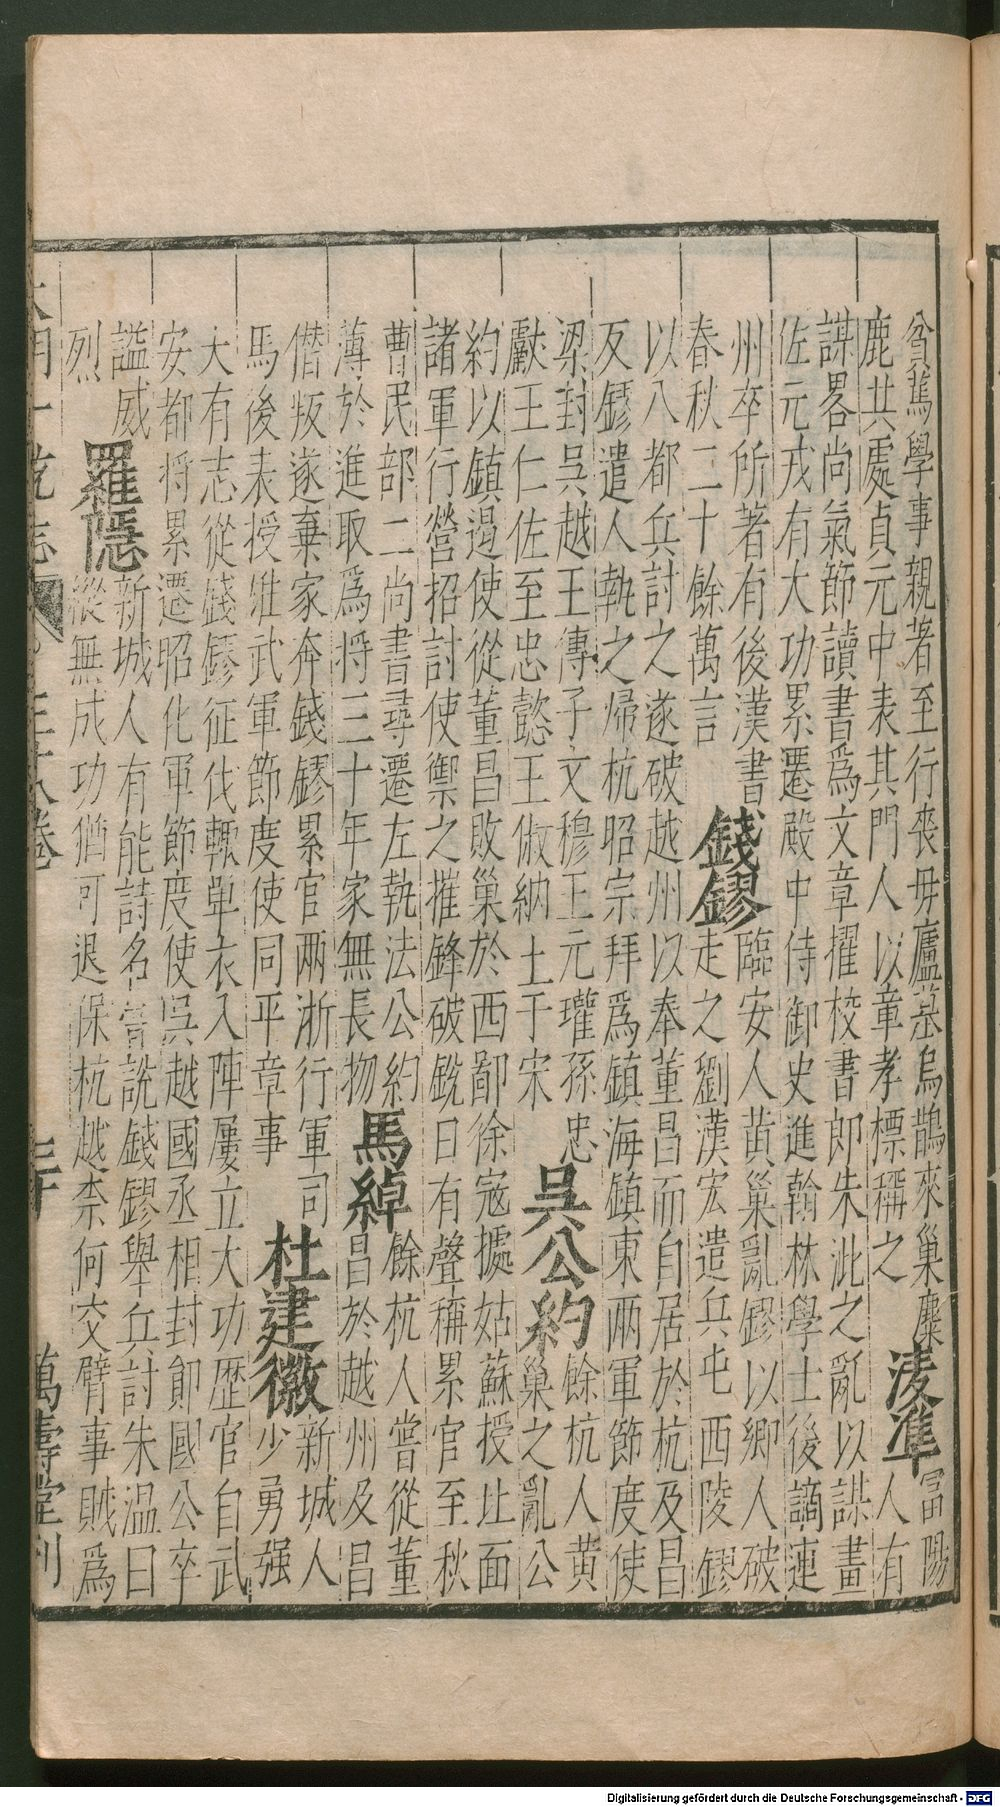 貧篤學事親著至行丧毋廬墓烏鵲來巢麋 凌準 富陽
鹿共處貞元中表其門人以章孝標稱之 人有
謀畧尚氣節讀書爲文章擢校書郎朱泚之亂以謀畫
佐元戎有大功累遷殿中侍御史進翰林學士後謫連
州卒所著有後漢書 錢鏐 臨安人黄巢亂鏐以鄉人破
春秋二十餘萬言 走之劉漢宏遣兵屯西陵鏐
以八都兵討之遂破越州以奉董昌而自居於杭及昌
反鏐遣人執之歸杭昭宗拜爲鎮海鎮東兩軍節度使
梁封吳越王傳子文穆王元瓘孫忠 吳公約 餘杭人黄
獻王仁佐至忠懿王俶納土于宋 巢之亂公
約以鎮遏使從董昌敗巢於西鄙徐寇據姑蘇授北面
諸軍行營招討使禦之摧鋒破銳日有聲稱累官至秋
曹民部二尚書尋遷左執法公約 馬綽 餘杭人嘗從董
薄於進取爲將三十年家無長物 昌於越州及昌
僣叛遂棄家奔錢鏐累官兩浙行軍司 杜建徽 新城人
馬後表授雄武軍節度使同平章事 少勇强
大有志從錢鏐征伐輙單衣入陣屢立大功歷官自武
安都將累遷昭化軍節度使吳越國丞相封鄖國公卒
謚威 羅隱 新城人有能詩名嘗說錢鏐舉兵討朱温曰
烈 縱無成功猶可退保杭越柰何交臂事賊爲
大明一統志 三十八卷 三十 萬壽堂刊
Digitalisierung gefördert durch die Deutsche Forschungsgemeinschaft - DFG